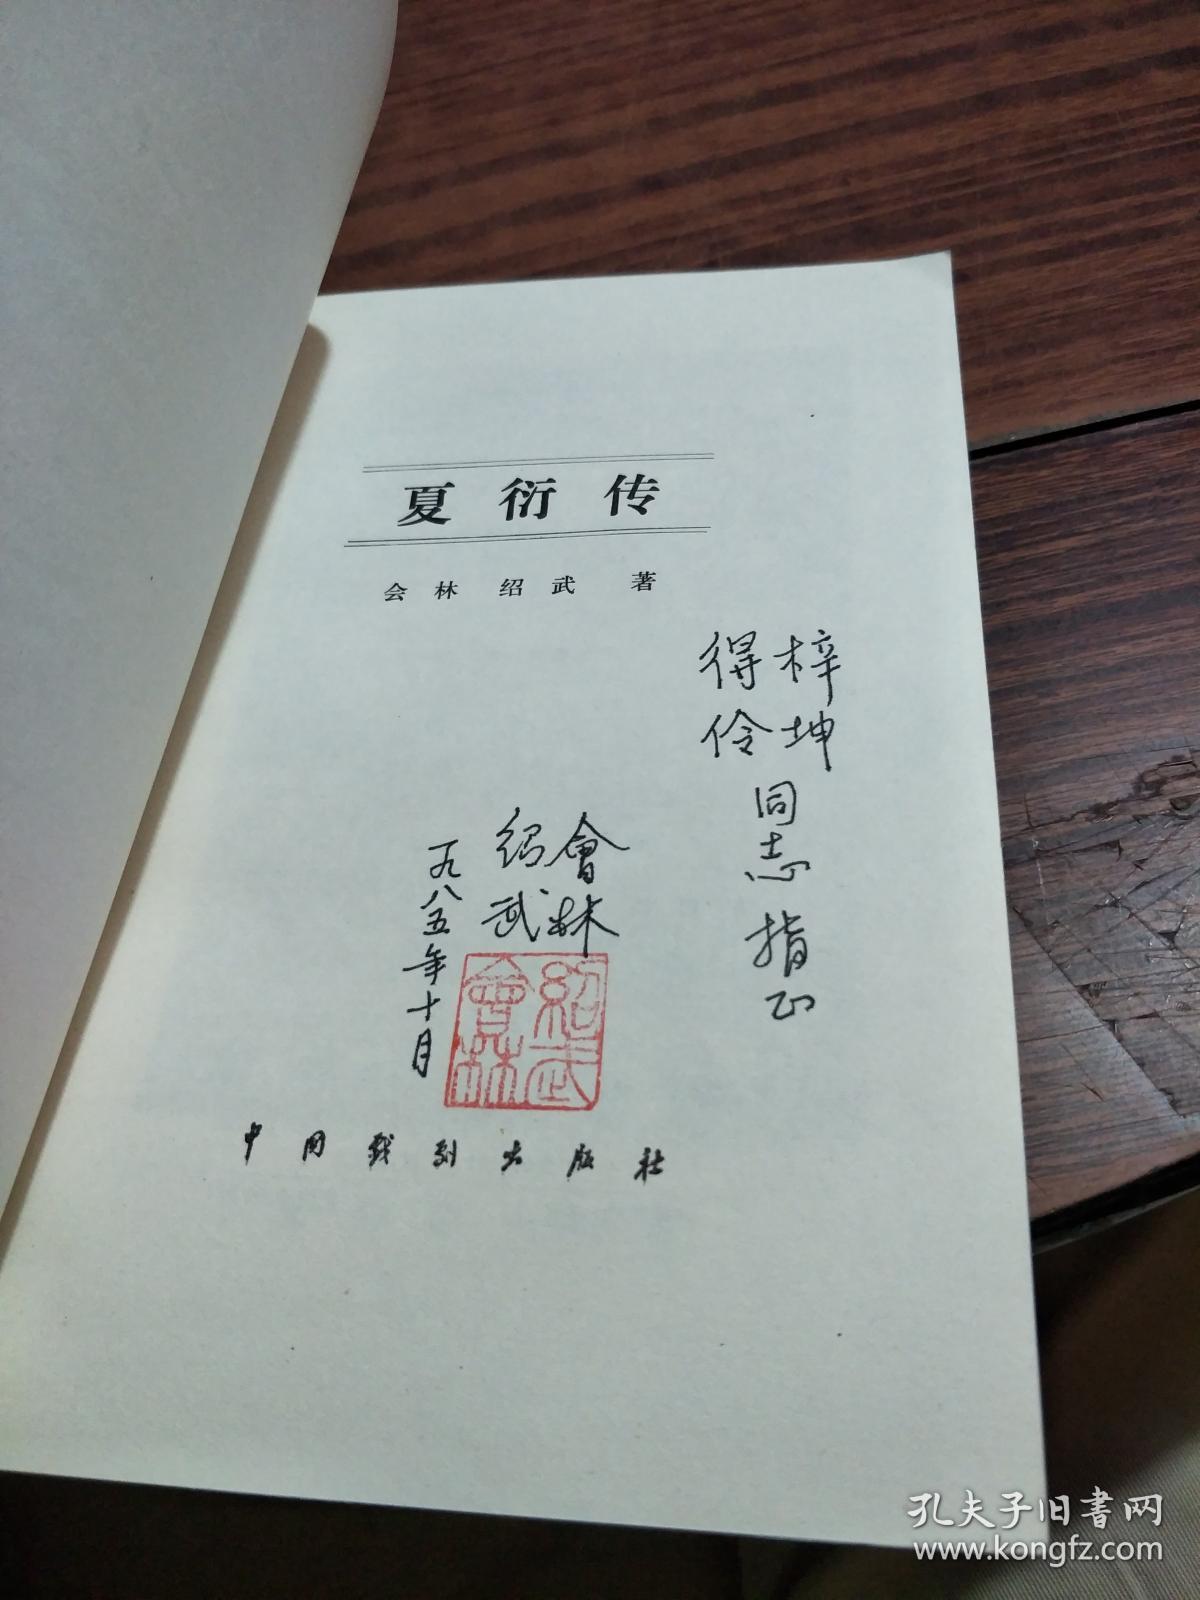 夏衍传
会林 绍武 著
梓坤
得伶
同志 指正
會林
绍武
一九八五年十月
紹武
會林
中国戏剧出版社
孔夫子旧书网
www.kongfz.com